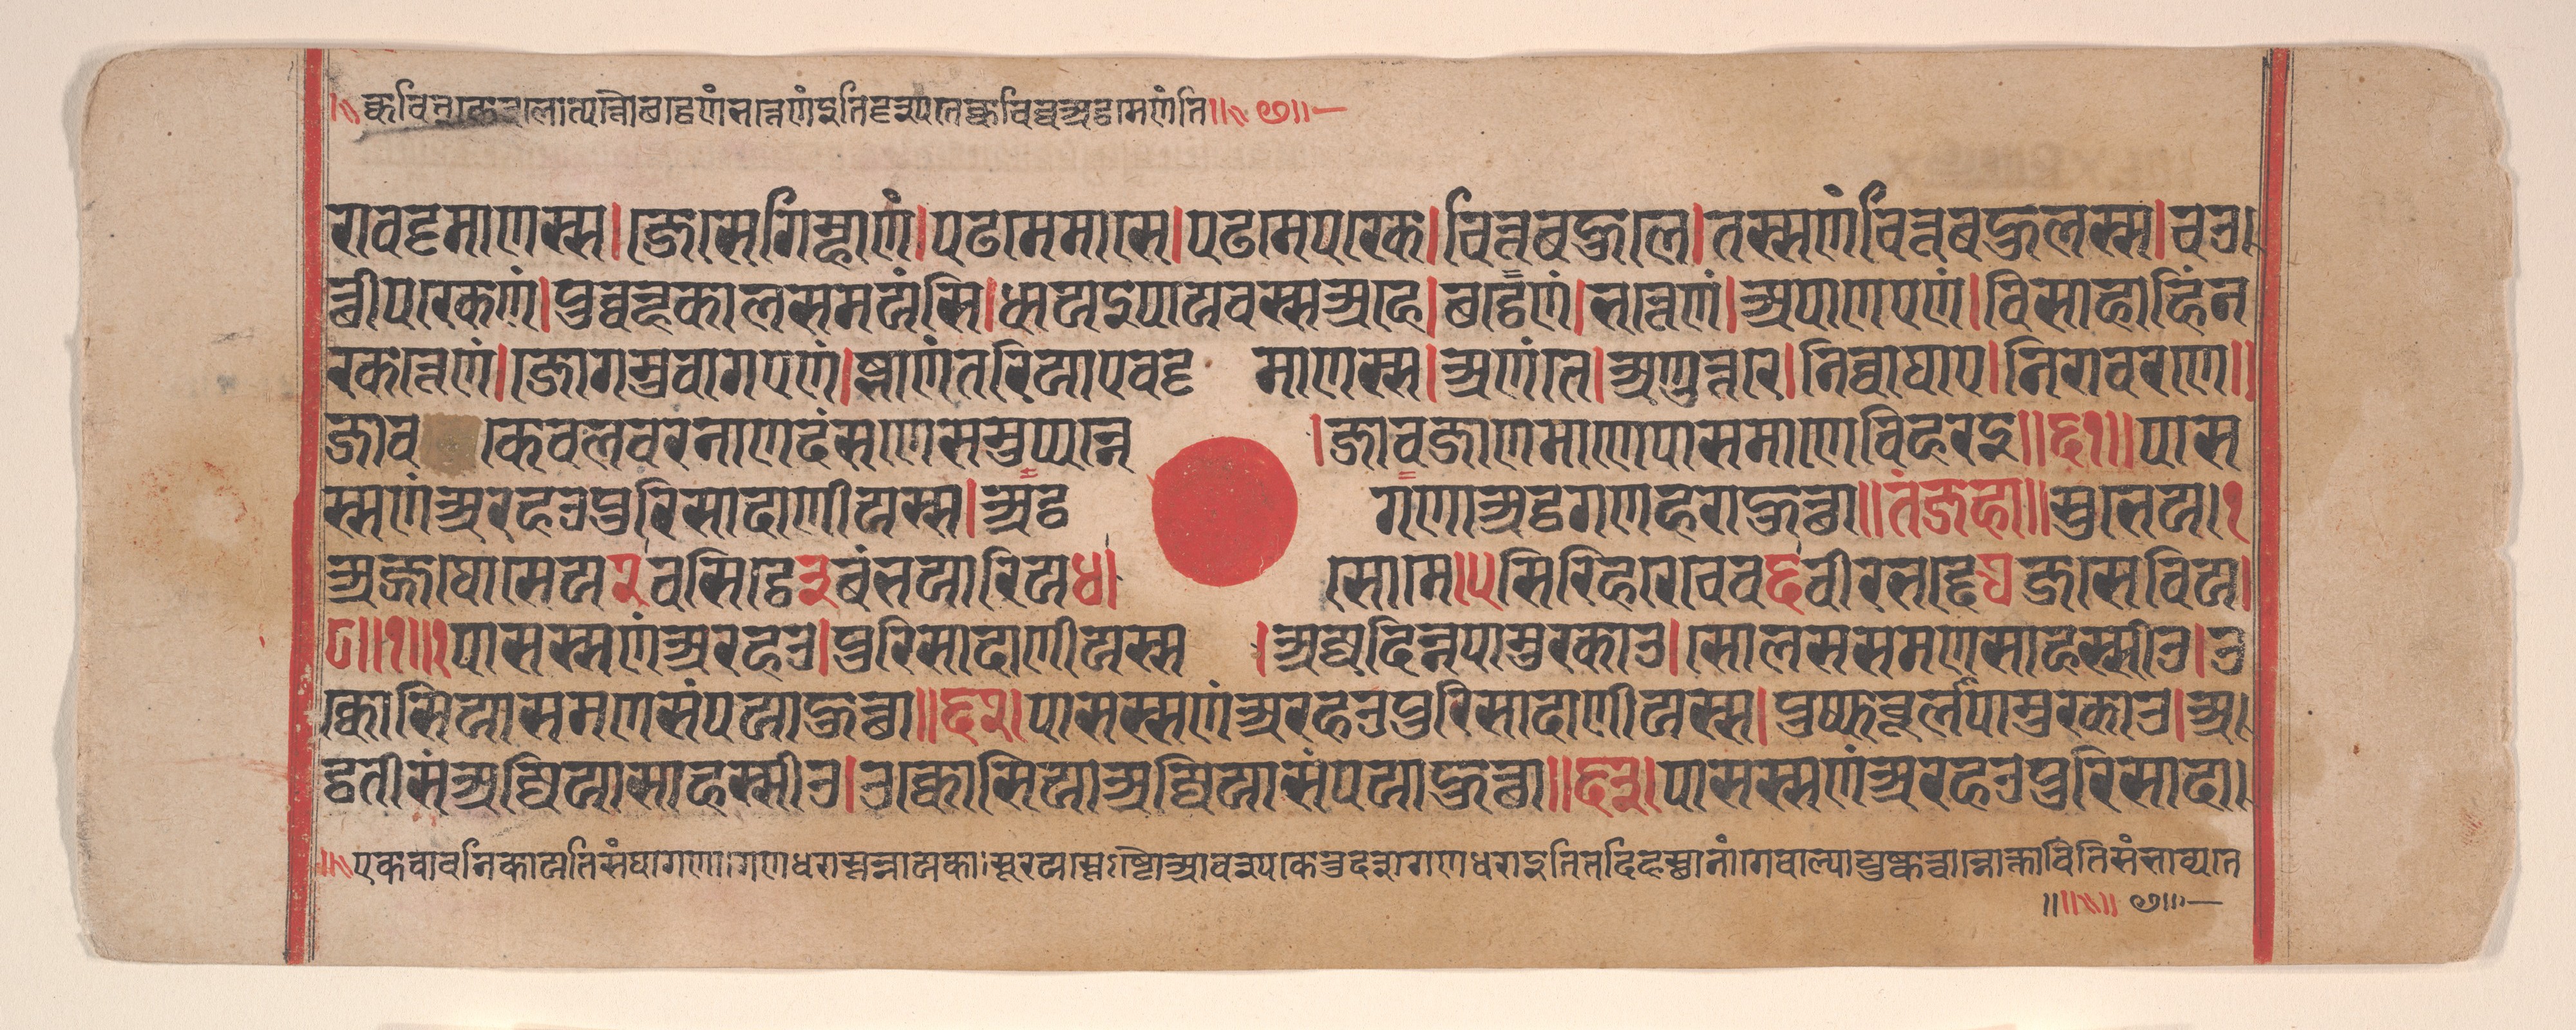 ॥क्वचित्केवलोत्पत्तौ छट्ठेणं भत्तेणं इति दृश्यते क्वचिच्च अट्ठमेणंति॥
रावट्टमाणस्स।जे से गिम्हाणं।पढमे मासे।पढमे परके।चित्तबहुले।तस्सणं चित्तबहुलस्स।चउ
त्थीपरकेणं।पुव्वन्हकालसमयंसि।धायइपायवस्स अहे।छट्ठेणं।भत्तेणं।अपाणएणं।विसाहाहिं न
रकत्तेणं।जोगमुवागएणं।झाणंतरियाए वट्टमाणस्स।अणंते।अणुत्तरे।निव्वाघाए।निरावरणे॥
जाव केवलवरनाणदंसणे समुप्पन्ने।जाव जाणमाणे पासमाणे विहरइ॥६१॥पास
स्सणं अरहउ पुरिसादाणीयस्स।अट्ठ गणा अट्ठ गणहरा हुत्था॥तं जहा॥सुभेय।१
अज्जघोसे य २ वसिट्ठे ३ बंभयारि य ४।सोमे।५ सिरिहरे चेव ६ वीरभद्दे ७ जसे वि य।
८॥१॥१ पासस्सणं अरहउ।पुरिसादाणीयस्स।अज्जदिन्नपामुरकाउ।सोलस समणसाहस्सीउ।उ
क्कोसिया समणसंपया हुत्था॥६२।पासस्सणं अरहउ पुरिसादाणीयस्स।पुप्फचूलपामुरकाउ।अ
ट्ठतीसं अज्जियासाहस्सीउ।उक्कोसिया अज्जियासंपया हुत्था॥६३।पासस्सणं अरहउ पुरिसादा
॥एकवाचनिका यतिसंघा गणाः गणधरास्तन्नायकाः सूरयस्तेऽष्टौ आवश्यके तु दश गणा गणधरा इति तदिह स्थानांगे चाल्पायुष्कत्वान्नोक्ताविति संभाव्यते